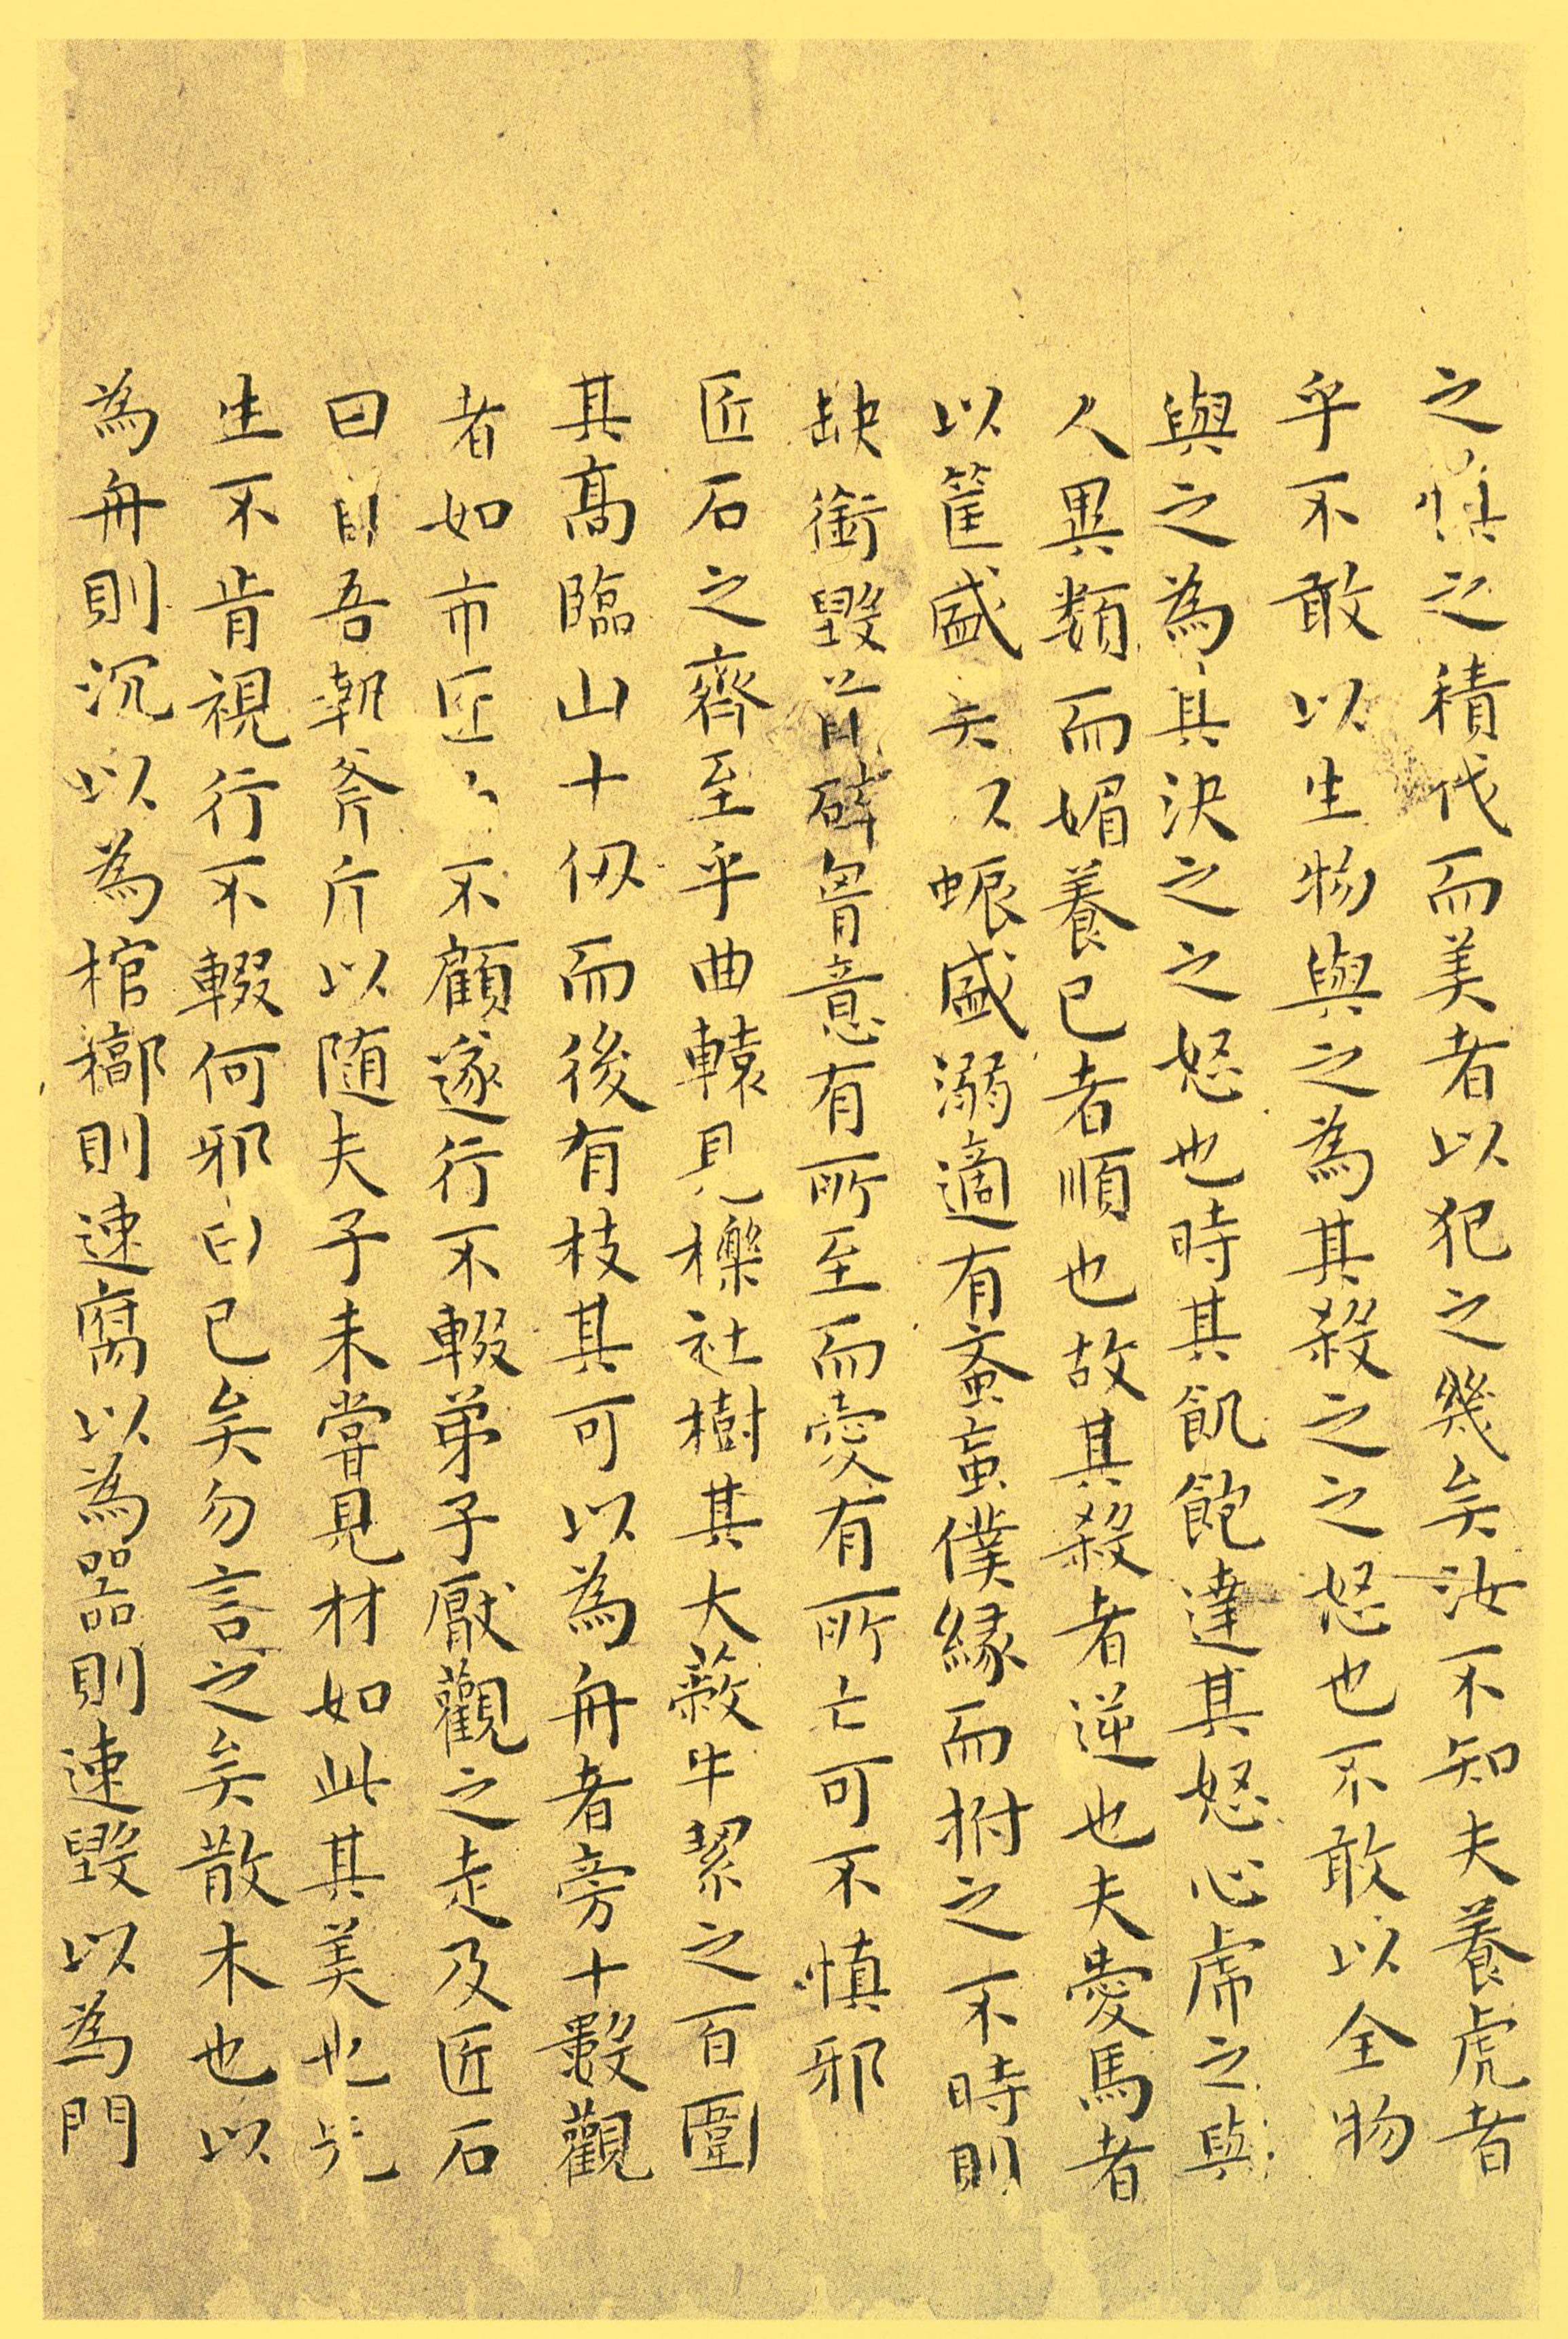 之慎之積伐而美者以犯之幾矣汝不知夫養虎者
乎不敢以生物與之為其殺之之怒也不敢以全物
與之為其決之之怒也時其飢飽達其怒心虎之與
人異類而媚養已者順也故其殺者逆也夫愛馬者
以筐盛矢以蜄盛溺適有蚉䖟僕緣而拊之不時則
缺銜毀首碎胷意有所至而愛有所亡可不慎邪
匠石之齊至乎曲轅見櫟社樹其大蔽牛絜之百圍
其高臨山十仞而後有枝其可以為舟者旁十數觀
者如市匠不顧遂行不輟弟子厭觀之走及匠石
曰自吾執斧斤以隨夫子未嘗見材如此其美也先
生不肯視行不輟何邪曰已矣勿言之矣散木也以
為舟則沉以為棺槨則速腐以為器則速毀以為門